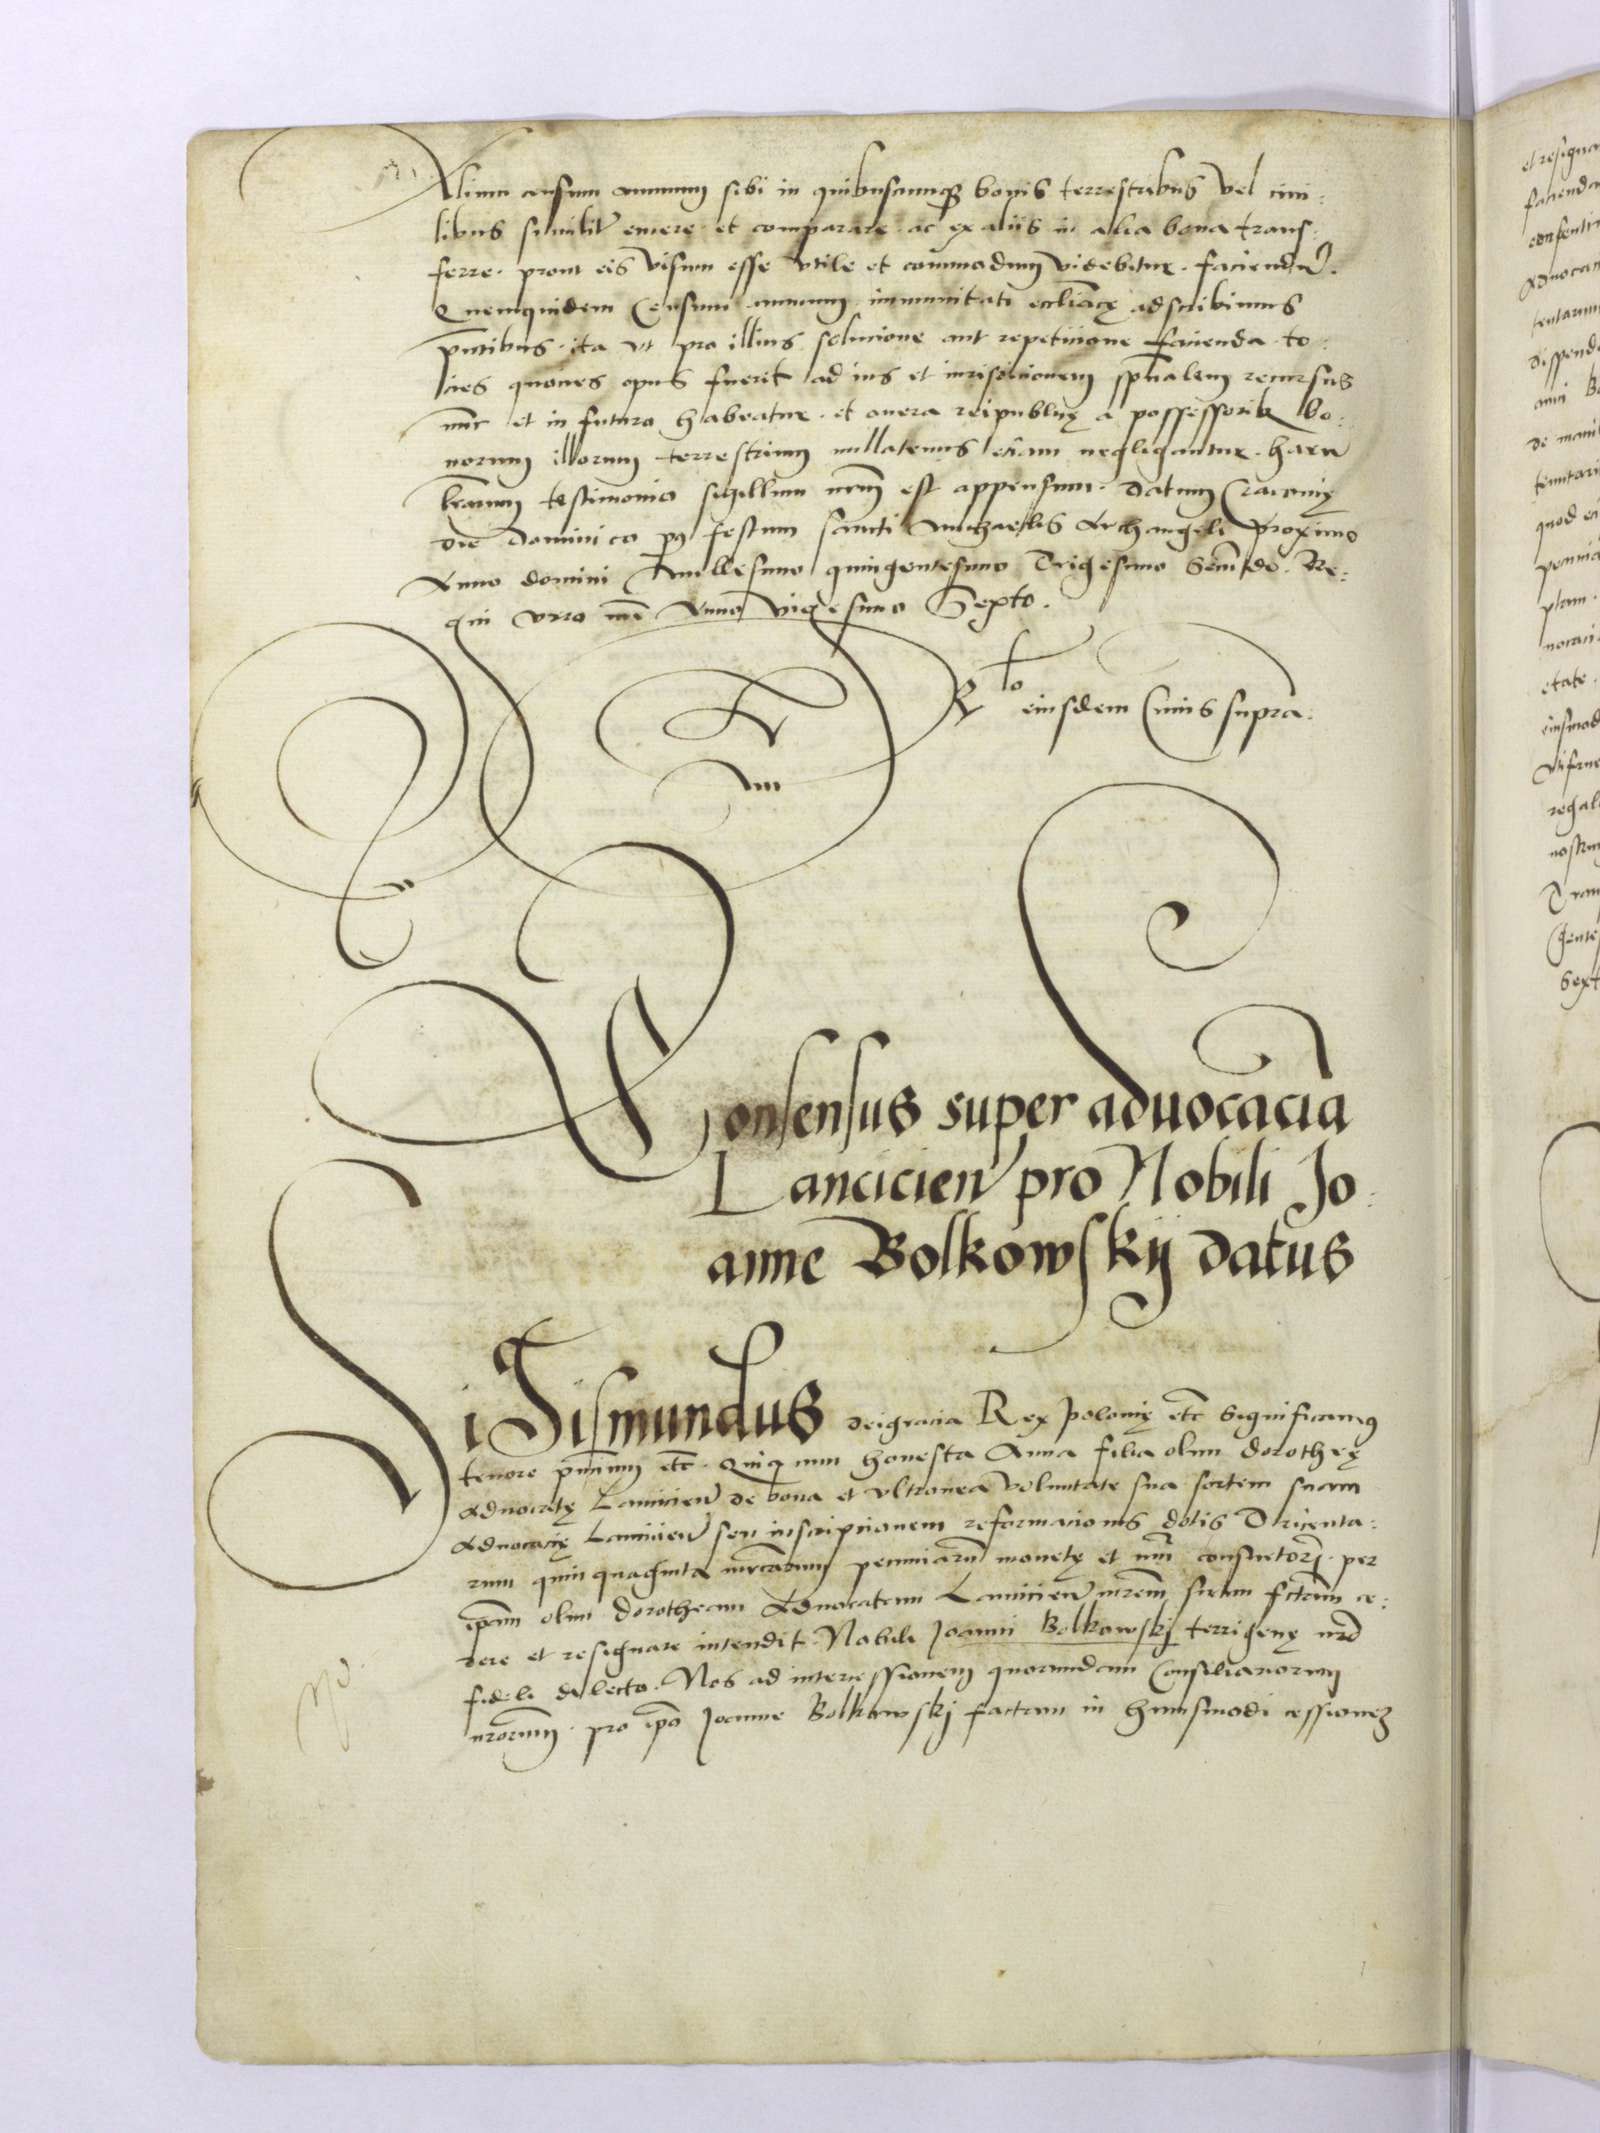 Alium censum annuum sibi in quibuscunqȝ bonis terrestribus vel civi:
libus similitr emere et comparare ac ex aliis in alia bona trans:
ferre prout eis visum esse vtile et commodum videbitur faciendū.
Quemquidem Censum annuum immunitati eccliasticę adscribimus
pntibus ita vt pro illius solucione aut repeticione facienda to:
cies quocies opus fuerit ad ius et iurisdicionem spualem recursus
nunc et in futuro habeatur et onera reipublicę a possessorib bo:
norum illorum terrestrium nullatenus eciam negligantur. harū
lrarum testimonio sigillum nrum est appensum. Datum Cracovię
die dominico post festum sancti Michaelis Archangeli proximo
Anno domini Millesimo quingentesimo Trigesimo Secundo. Re:
gni vero nri Anno vigesimo Septo.
Rlo eiusdem Cuius supra.
Consensus super aduocacia
Lancicien pro Nobili Jo:
anne Bolkowskij datus
Sigismundus dei gracia Rex Polonię etc Significamus
tenore pntium etc. Quia cum honesta Anna filia olim dorotheę
Aduocatę Lancicien de bona et vltronea voluntate sua sortem suam
Aduocacię Lancicien seu inscripcionem reformacionis dotis Tricenta:
rum quinquaginta mrcarum pecuniarū monetę et nūi consuetorū per
ipam olim dorotheam Aduocatam Lancicien mrem suam fctam ce:
dere et resignare intendit Nobili Joanni Bolkowskj terrigenę nro
fideli dilecto. Nos ad intercessionem quorundam Consiliariorum
nrorum pro ipo Joanne Bolkowskj factam in huiusmodi cessionem